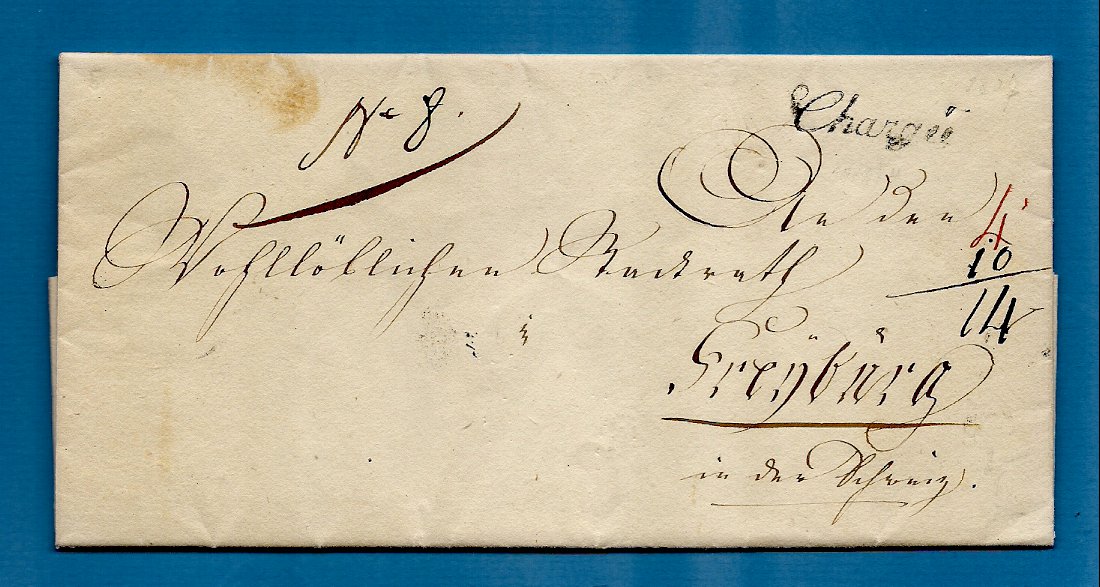 No 8.
Chargé
An den
Wohllöblichen Stadtrath
4
10
14
zu
Freÿburg
in der Schweiz.